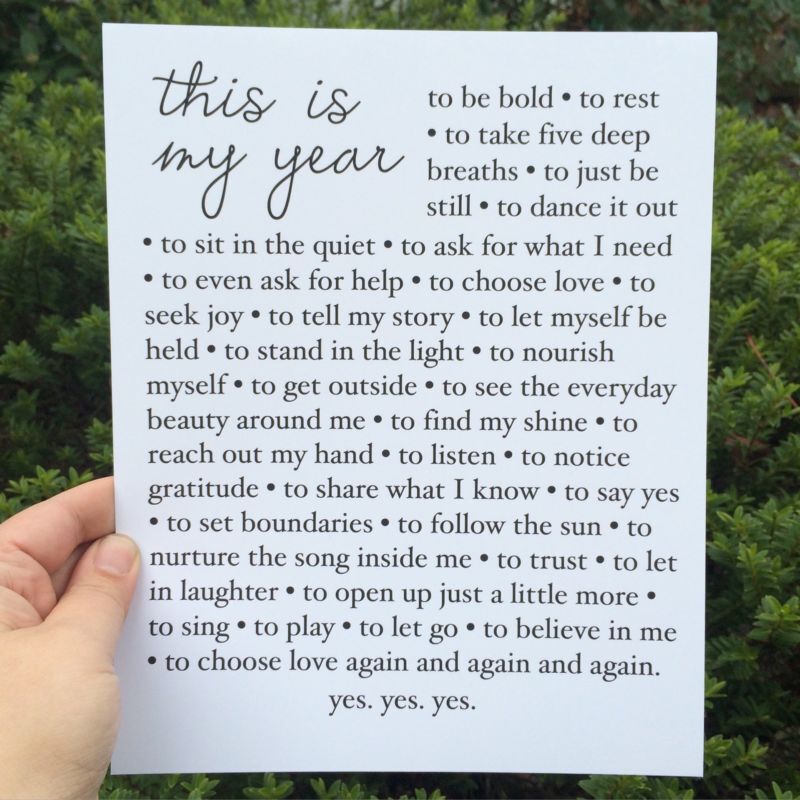 this is
my year
to be bold • to rest
• to take five deep
breaths • to just be
still • to dance it out
• to sit in the quiet • to ask for what I need
• to even ask for help • to choose love • to
seek joy • to tell my story • to let myself be
held • to stand in the light • to nourish
myself • to get outside • to see the everyday
beauty around me • to find my shine • to
reach out my hand • to listen • to notice
gratitude • to share what I know • to say yes
• to set boundaries • to follow the sun • to
nurture the song inside me • to trust • to let
in laughter • to open up just a little more •
to sing • to play • to let go • to believe in me
• to choose love again and again and again.
yes. yes. yes.